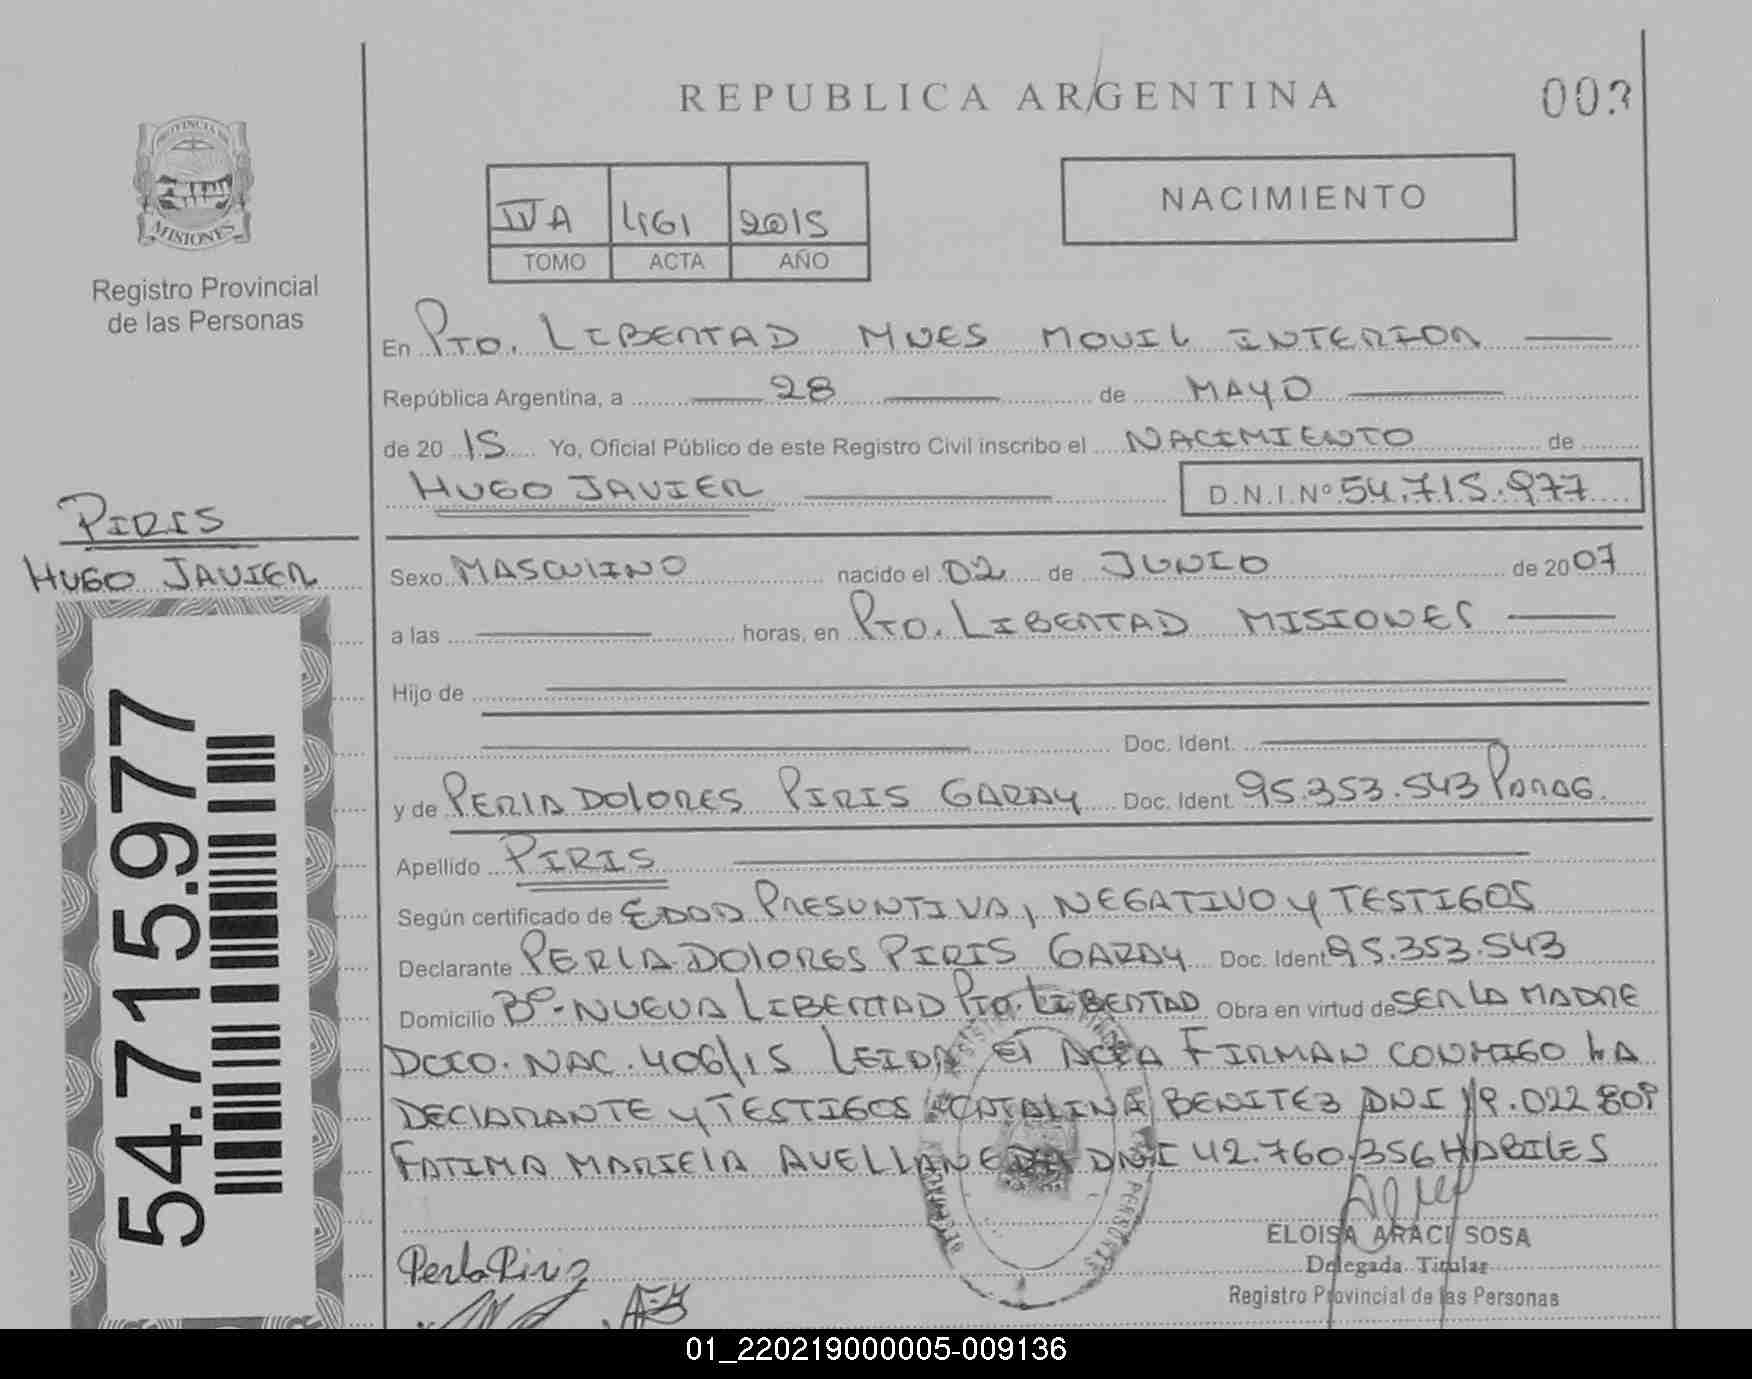 REPUBLICA ARGENTINA
003
PROVINCIA DE
MISIONES
Registro Provincial
de las Personas
IV A 461 2015
TOMO ACTA AÑO
NACIMIENTO
En PTO. LIBERTAD MNES MOVIL INTERIOR
República Argentina, a 28 de MAYO
de 2015 Yo, Oficial Público de este Registro Civil inscribo el NACIMIENTO de
HUGO JAVIER D.N.I.Nº 54.715.977
PIRIS
HUGO JAVIER
Sexo MASCULINO nacido el 02 de JUNIO de 2007
a las horas, en PTO. LIBERTAD MISIONES
Hijo de
Doc. Ident.
y de PERLA DOLORES PIRIS GARAY Doc. Ident. 95.353.543 PARAG.
Apellido PIRIS
Según certificado de EDAD PRESUNTIVA, NEGATIVO y TESTIGOS
Declarante PERLA DOLORES PIRIS GARAY Doc. Ident 95.353.543
Domicilio Bº- NUEVA LIBERTAD PTO. LIBERTAD Obra en virtud de SER LA MADRE
DCTO. NAC. 406/15 LEIDA El ACTA FIRMAN CONMIGO LA
DECLARANTE y TESTIGOS CATALINA BENITEZ DNI 19.022.809
FATIMA MARIELA AVELLANEDA DNI 42.760.356 HABILES
54.715.977
Perla Piriz
ELOISA ARACI SOSA
Delegada Titular
Registro Provincial de las Personas
01_220219000005-009136